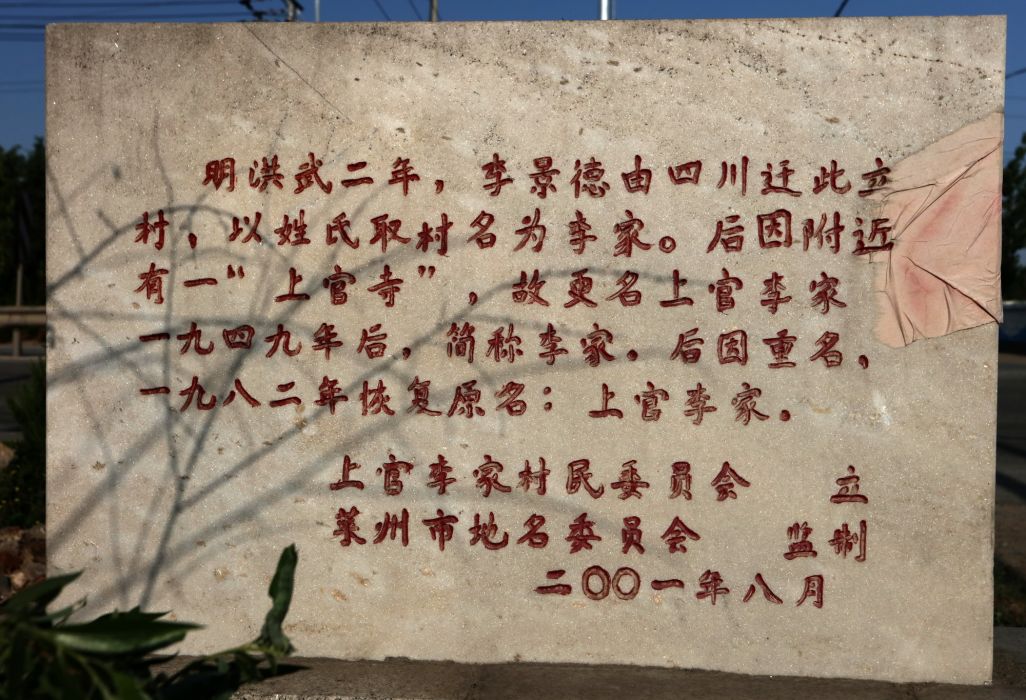 明洪武二年，李景德由四川迁此立
村，以姓氏取村名为李家。后因附近
有一“上官寺”，故更名上官李家
一九四九年后，简称李家．后因重名，
一九八二年恢复原名：上官李家．
上官李家村民委员会 立
莱州市地名委员会 监制
二〇〇一年八月